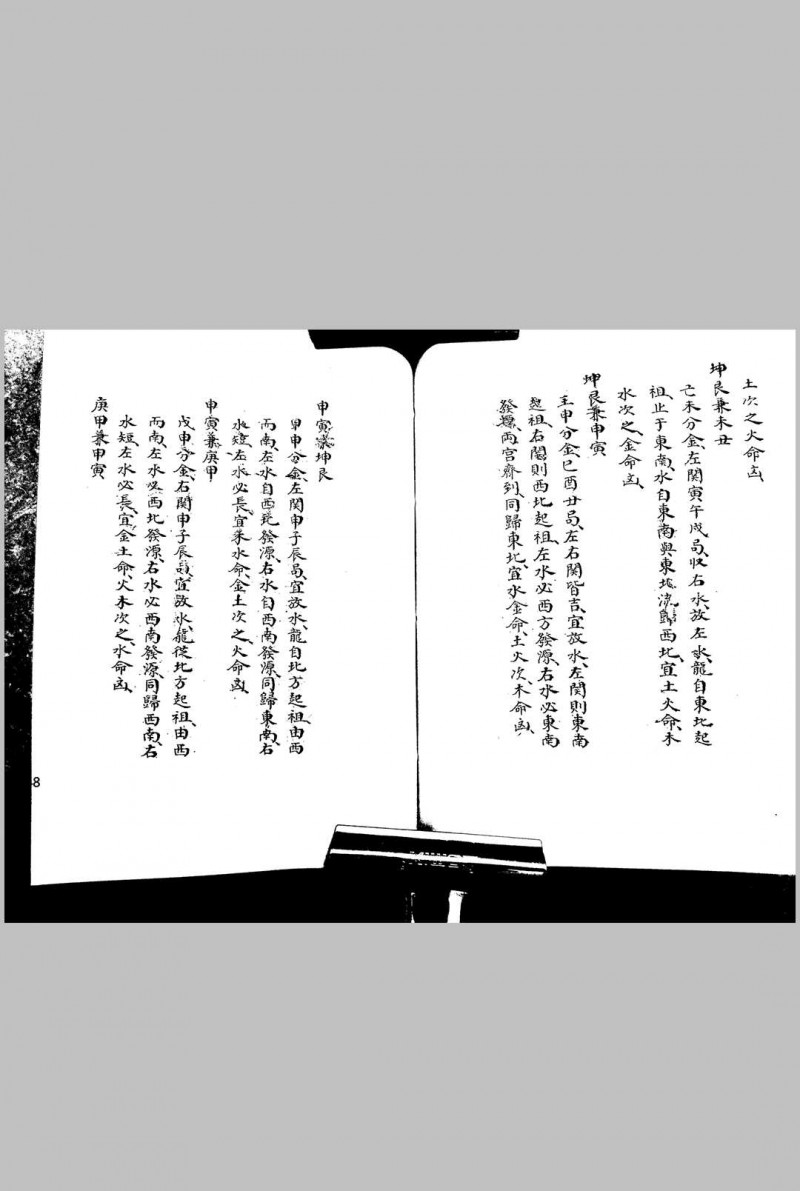 土次之火命凶
坤艮兼未丑
亡未分金、左関寅午戌局、収右水、放左水、龍自東北起
祖、止于東南、水自東南與東北流歸西北、宜土火命、木
水次之、金命凶
坤艮兼申寅
壬申分金、巳酉丑局、左右関皆吉、宜放水、左関則東南
起祖、右関則西北起祖、左水必西方發源、右水必東南
發源、両宫齊到、同歸東北、宜水金命、土火次、木命凶、
申寅兼坤艮
甲申分金、左関申子辰局、宜放水、龍自北方起祖、由西
而南、左水自西北發源、右水自西南發源、同歸東南、右
水短、左水必長、宜木水命、金土次之、火命凶
申寅兼庚甲
戊申分金、右関申子辰局、宜放水、龍從北方起祖、由西
而南、左水必西北發源、右水必西南發源、同歸西南、右
水短、左水必長、宜金土命、火木次之、水命凶
庚甲兼申寅
8